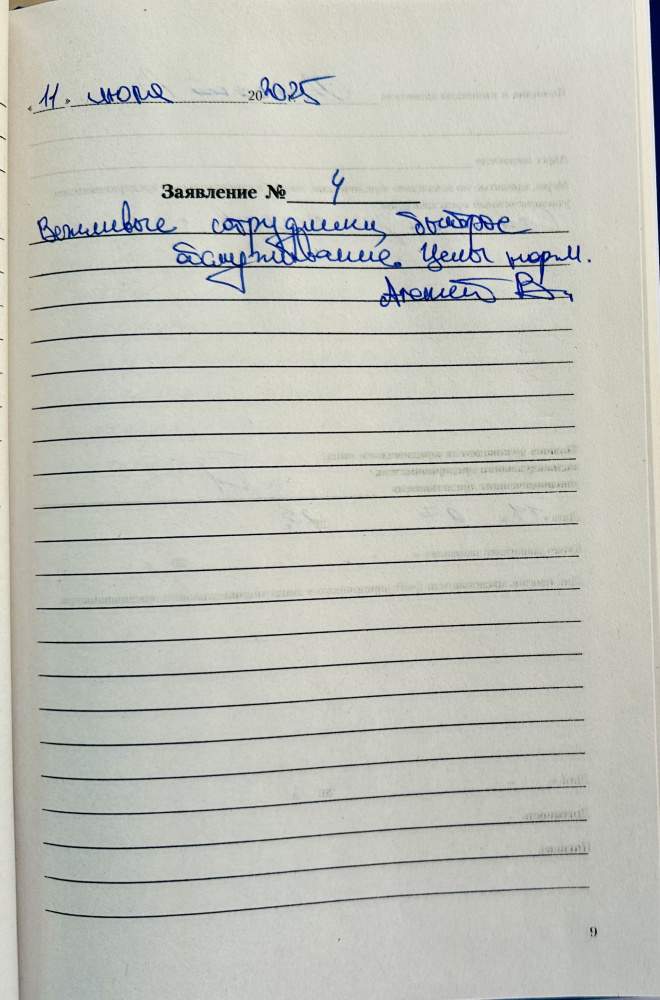 «11» июля 202025
Заявление № 4
Вежливые сотрудники, быстрое
обслуживание. Цены норм.
Алексей В.
9